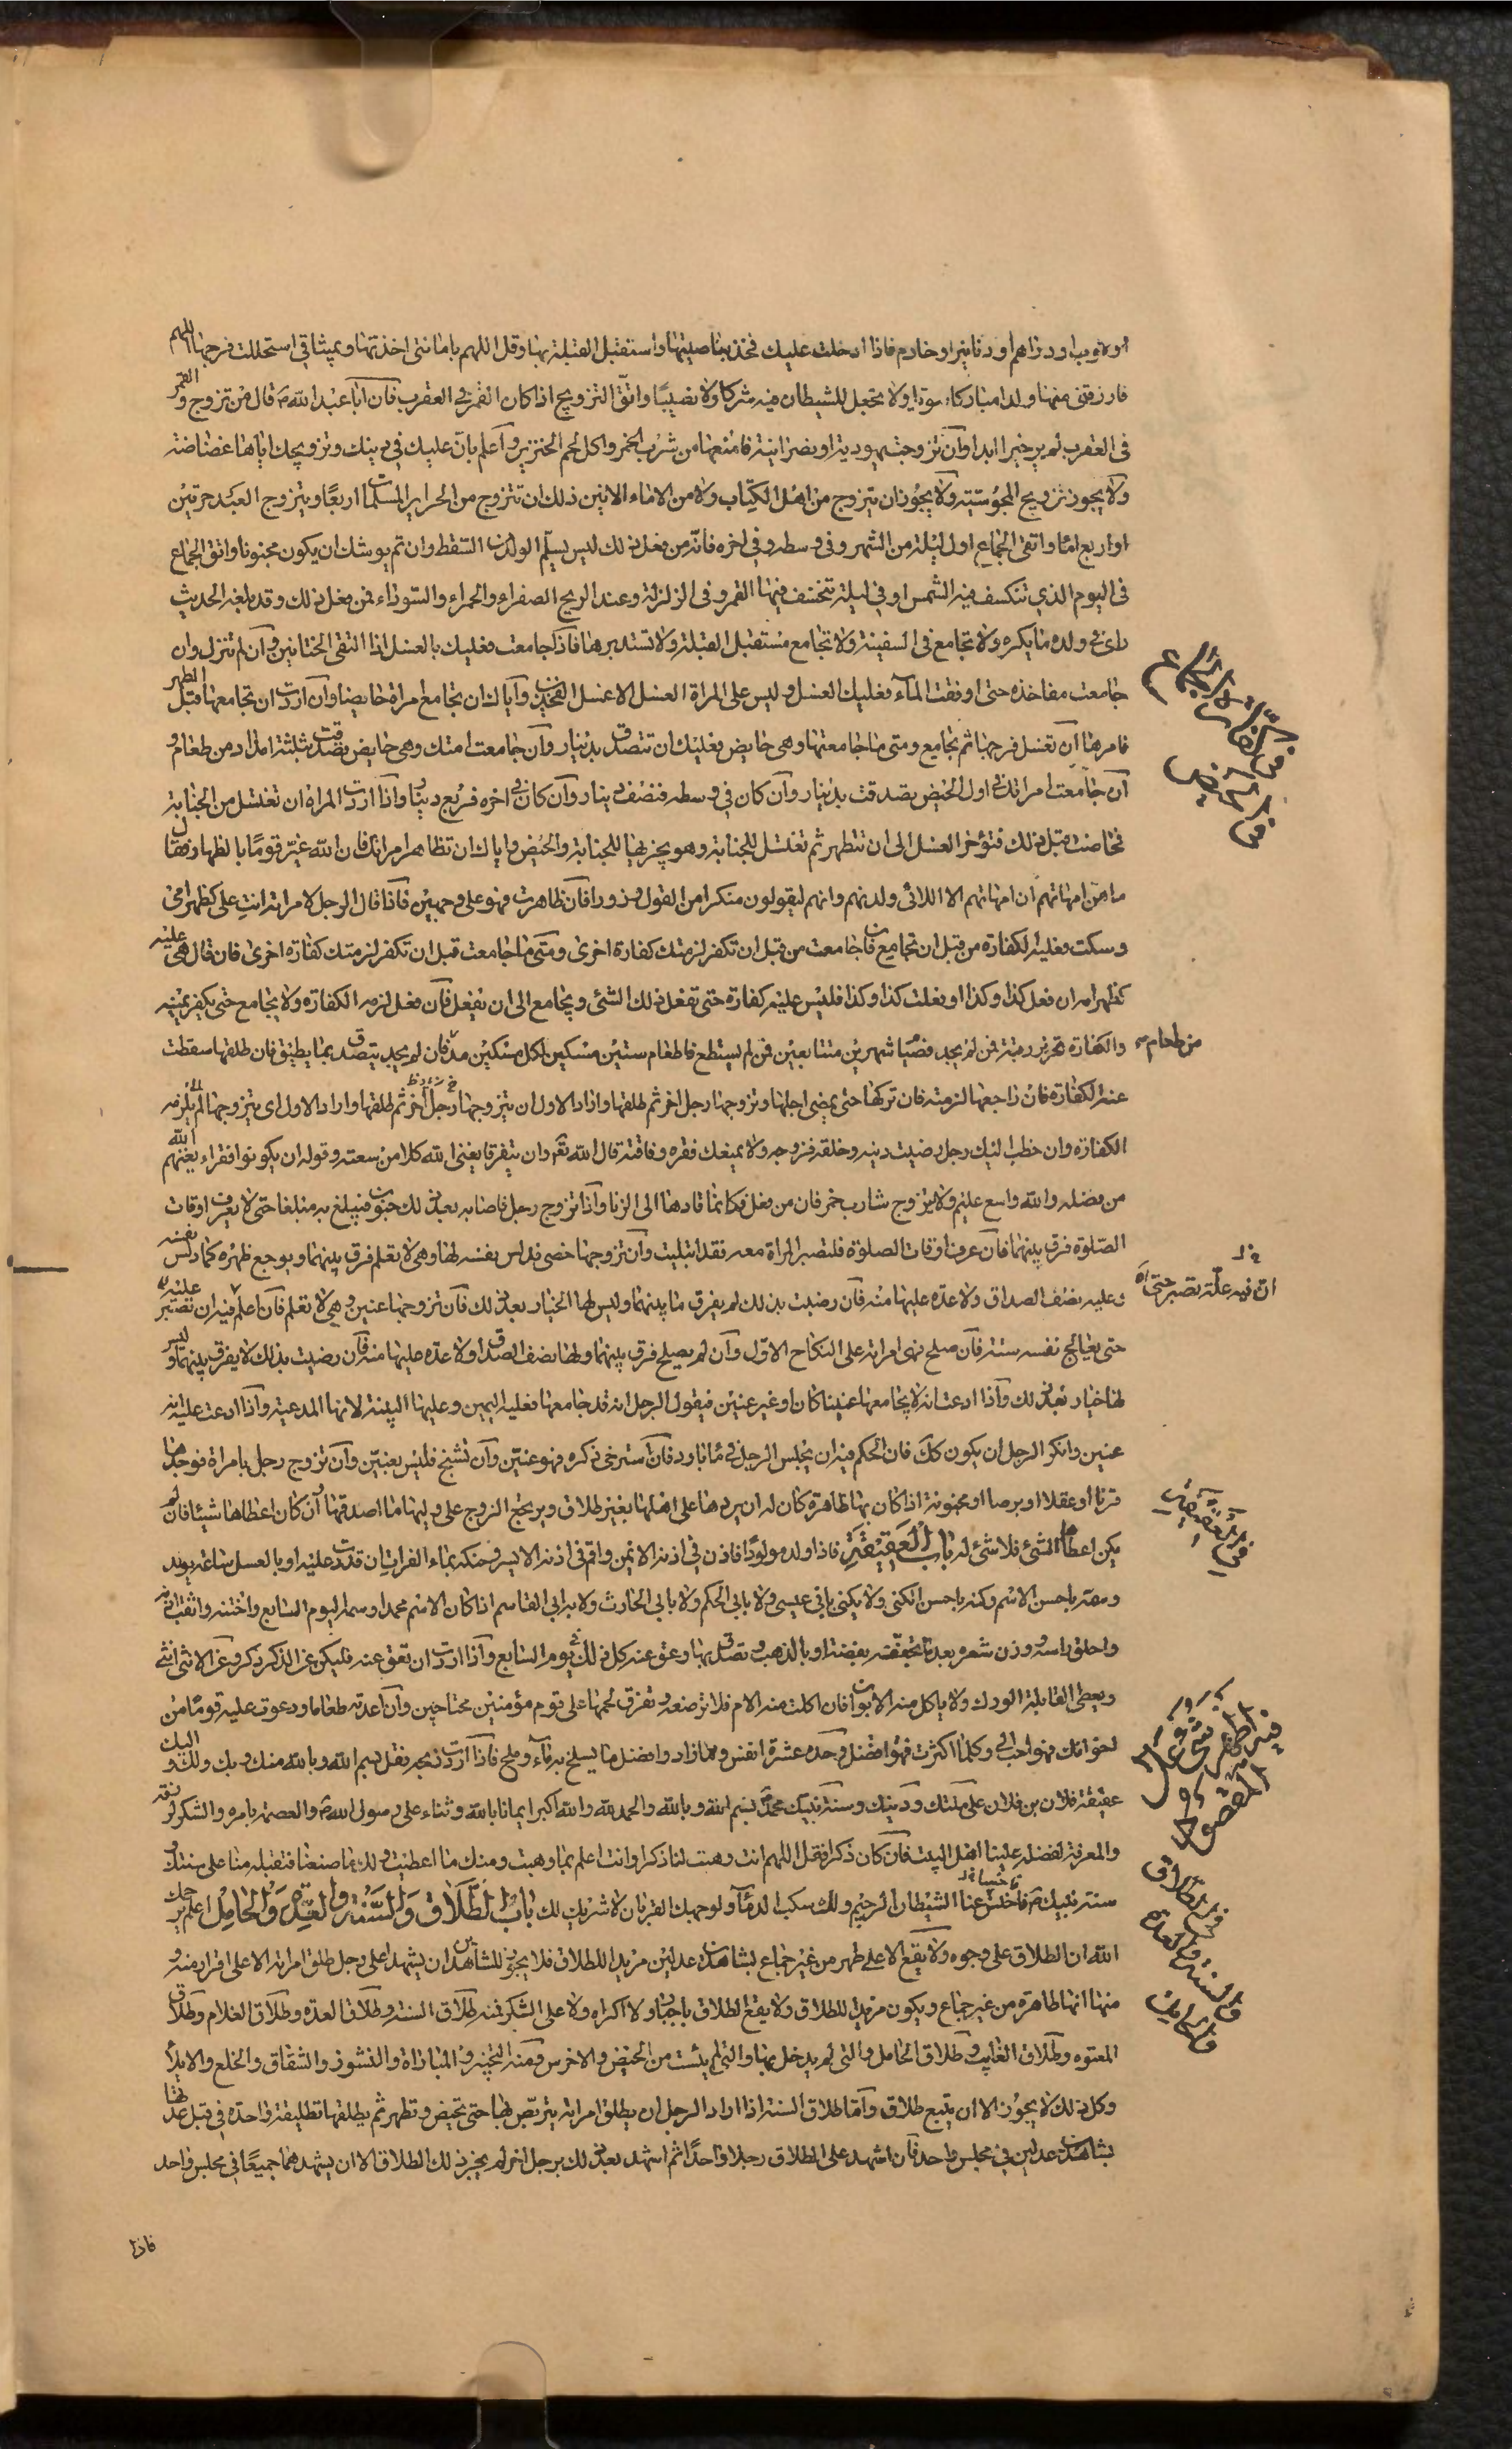 او ثوب او دراهم او دنانير او خادم فاذا ادخلت عليك فخذ بناصيتها واستقبل القبلة بها وقل اللهم بامانتى اخذتها وبميثاقى استحللت فرجها اللهم
فارزقنى منها ولدا مباركا سويا ولا تجعل للشيطان فيه شركا ولا نصيبا واتق التزويج اذا كان القمر فى العقرب فان ابا عبد الله ع قال من تزوج والقمر
فى العقرب لم ير خيرا ابدا وان تزوجت يهودية او نصرانية فامنعها من شرب الخمر واكل لحم الخنزير واعلم بان عليك فى دينك وتزويجك اياها غضاضة
ولا يجوز تزويج المجوسية ولا يجوز ان يتزوج من اهل الكتاب ولا من الاماء الا اثنين ذلك ان تتزوج من الحراير المسلمات اربعا ويتزوج العبد حرتين
او اربع اماء واتقى الجماع اول ليلة من الشهر وفى وسطه وفى اخره فانه من فعل ذلك ليس يسلم الولد من السقط وان تم يوشك ان يكون مجنونا واتق الجماع
فى اليوم الذي تنكسف فيه الشمس او فى ليلة تنخسف فيها القمر وفى الزلزلة وعند الريح الصفراء والحمراء والسوداء فمن فعل ذلك وقد بلغه الحديث
راى فى ولده ما يكره ولا تجامع فى السفينة ولا تجامع مستقبل القبلة ولا تستدبرها فاذا جامعت فعليك بالغسل اذا التقى الختانين وان لم تنزل وان
جامعت مفاخذه حتى اوفقت الماء فعليك الغسل وليس على المراة الغسل الا غسل الفخذين واياك ان تجامع امراة حايضا وان اردت ان تجامعها قبل الطهر
فامرها ان تغسل فرجها ثم تجامع ومتى ما جامعتها وهى حايض فعليك ان تتصدق بدينار وان جامعت امتك وهى حايض تصدقت بثلثة امداد من طعام و
ان جامعت امراتك فى اول الحيض تصدقت بدينار وان كان فى وسطه فنصف دينار وان كان فى اخره فربع دينار واذا اردت المراة ان تغتسل من الجنابة
فحاضت قبل ذلك فتؤخر الغسل الى ان تتطهر ثم تغتسل للجنابة وهو يجزيها للجنابة والحيض واياك ان تظاهر امراتك فان الله عير قوما بالظهار فقال
ما هن امهاتهم ان امهاتهم الا اللائى ولدنهم وانهم ليقولون منكرا من القول وزورا فان ظاهرت فهو على وجهين فاذا قال الرجل لامراته انت على كظهر امى
وسكت فعليه الكفارة من قبل ان تجامع فان جامعت من قبل ان تكفر لزمتك كفارة اخرى ومتى ما جامعت قبل ان تكفر لزمتك كفارة اخرى فان قال هى عليه
كظهر امه ان فعل كذا وكذا او فعلت كذا وكذا فليس عليه كفارة حتى تفعل ذلك الشئى ويجامع الى ان يفعل فان فعل لزمه الكفارة ولا يجامع حتى يكفر يمينه
والكفارة تحرير رقبة فمن لم يجد فصيام شهرين متتابعين فمن لم يستطع فاطعام ستين مسكين لكل مسكين مد فان لم يجد يتصدق بما يطيق فان طلقها سقطت
عنه الكفارة فان راجعها لزمته فان تركها حتى يمضى اجلها وتزوجها رجل اخر ثم طلقها واراد الاول ان يتزوجها رجل اخر ثم طلقها واراد الاول اى يتزوجها لم يلزمه
الكفارة وان خطب اليك رجل رضيت دينه وخلقه فزوجه ولا يمنعك فقره وفاقته قال الله تع وان يتفرقا يغنى الله كلا من سعته وقوله ان يكونوا فقراء يغنهم الله
من فضله والله واسع عليم ولا يتزوج شارب خمر فان من فعل فكانما قادها الى الزنا واذا تزوج رجل فاصابه بعد ذلك جنون فيبلغ به مبلغا حتى لا يعرف اوقات
الصلوة فرق بينهما فان عرف اوقات الصلوة فلتصبر المراة معه فقد ابتليت وان تزوجها خصى فدلس نفسه لها وهى لا تعلم فرق بينهما ويوجع ظهره كما دلس نفسه
وعليه نصف الصداق ولا عدة عليها منه فان رضيت بذلك لم يفرق ما بينهما وليس لها الخيار بعد ذلك فان تزوجها عنين وهى لا تعلم فان اعلم فيه ان تصبر عليه
حتى يعالج نفسه سنة فان صلح فهى امراته على النكاح الاول وان لم يصلح فرق بينهما ولها نصف الصداق ولا عدة عليها منه فان رضيت بذلك لا يفرق بينهما وليس
لها خيار بعد ذلك واذا ادعت انه لا يجامعها عنينا كان او غير عنين فيقول الرجل انه قد جامعها فعليه اليمين وعليها البينة لانها المدعية واذا ادعت عليه انه
عنين وانكر الرجل ان يكون كك فان الحكم فيه ان يجلس الرجل فى ماء بارد فان استرخى ذكره فهو عنين وان تشنج فليس بعنين وان تزوج رجل بامراة فوجدها
قرناء او عقلاء او برصاء او مجنونة اذا كان بها ظاهرة كان له ان يردها على اهلها بغير طلاق ويرجع الزوج على وليها ما اصدقها ان كان اعطاها شيئا فان لم
يكن اعطاها الشئ فلا شئ له باب العقيقة فاذا ولد مولودا فاذن فى اذنه الايمن واقم فى اذنه الايسر وحنكه بماء الفرات ان قدرت عليه او بالعسل ساعة يولد
وسمه باحسن الاسم وكنه باحسن الكنى ولا يكنى بابى عيسى ولا بابى الحكم ولا بابى الحارث ولا بابى القاسم اذا كان الاسم محمدا وسمه اليوم السابع واختنه واثقب اذنه
واحلق راسه وزن شعره بعد ما تجففته بفضة او بالذهب وتصدق بها وعق عنه كل ذلك فى يوم السابع واذا اردت ان تعق عنه فليكن عن الذكر ذكر وعن الانثى انثى
ويعطى القابلة الورك ولا ياكل منه الابوان فان اكلت منه الام فلا ترضعه وتفرق لحمها على قوم مؤمنين محتاجين وان اعدته طعاما ودعوت عليه قوما من
اخوانك فهو احب الى وكلما اكثرت فهو افضل وحده عشرة انفس وما زاد وافضل ما يسلخ به ماء وملح فاذا اردت ذبحه فقل بسم الله وبالله منك وبك ولك واليك
عقيقة فلان بن فلان على ملتك ودينك وسنة نبيك محمد بسم الله وبالله والحمد لله والله اكبر ايمانا بالله وثناء على رسول الله ص والعصمة بامره والشكر لرزقه
والمعرفة لفضله علينا اهل البيت فان كان ذكرا فقل اللهم انت وهبت لنا ذكرا وانت اعلم بما وهبت ومنك ما اعطيت ولك ما صنعنا فتقبله منا على سنتك و
سنة نبيك ص فاخنس عنا الشيطان الرجيم ولك سكب الدماء ولوجهك القربان لا شريك لك باب الطلاق والسنة والعدة والحامل اعلم يرحمك
الله ان الطلاق على وجوه ولا يقع الا على طهر من غير جماع بشاهدين عدلين مريدا للطلاق فلا يجوز للشاهدين ان يشهدا على رجل طلق امراته الا على اقرار منه و
منها انها طاهرة من غير جماع ويكون مريدا للطلاق ولا يقع الطلاق باجبار ولا اكراه ولا على السكر فمنه طلاق السنة وطلاق العدة وطلاق الغلام وطلاق
المعتوه وطلاق الغايب وطلاق الحامل والتى لم يدخل بها والتى لم يئست من الحيض والاخرس ومنه التخيير والمباراة والنشوز والشقاق والخلع والايلاء
وكل ذلك لا يجوز الا ان يتبع طلاق واما طلاق السنة اذا اراد الرجل ان يطلق امراته يتربص بها حتى تحيض وتطهر ثم يطلقها تطليقة واحدة فى قبل عدتها
بشاهدين عدلين فى مجلس واحد فان اشهد على الطلاق رجلا واحدا ثم اشهد بعد ذلك برجل اخر لم يجز ذلك الطلاق الا ان يشهدهما جميعا فى مجلس واحد
فاذا
من طعام
ان فيه علة تصبر حتى
فى الطلاق
والسنة والعدة
والحامل